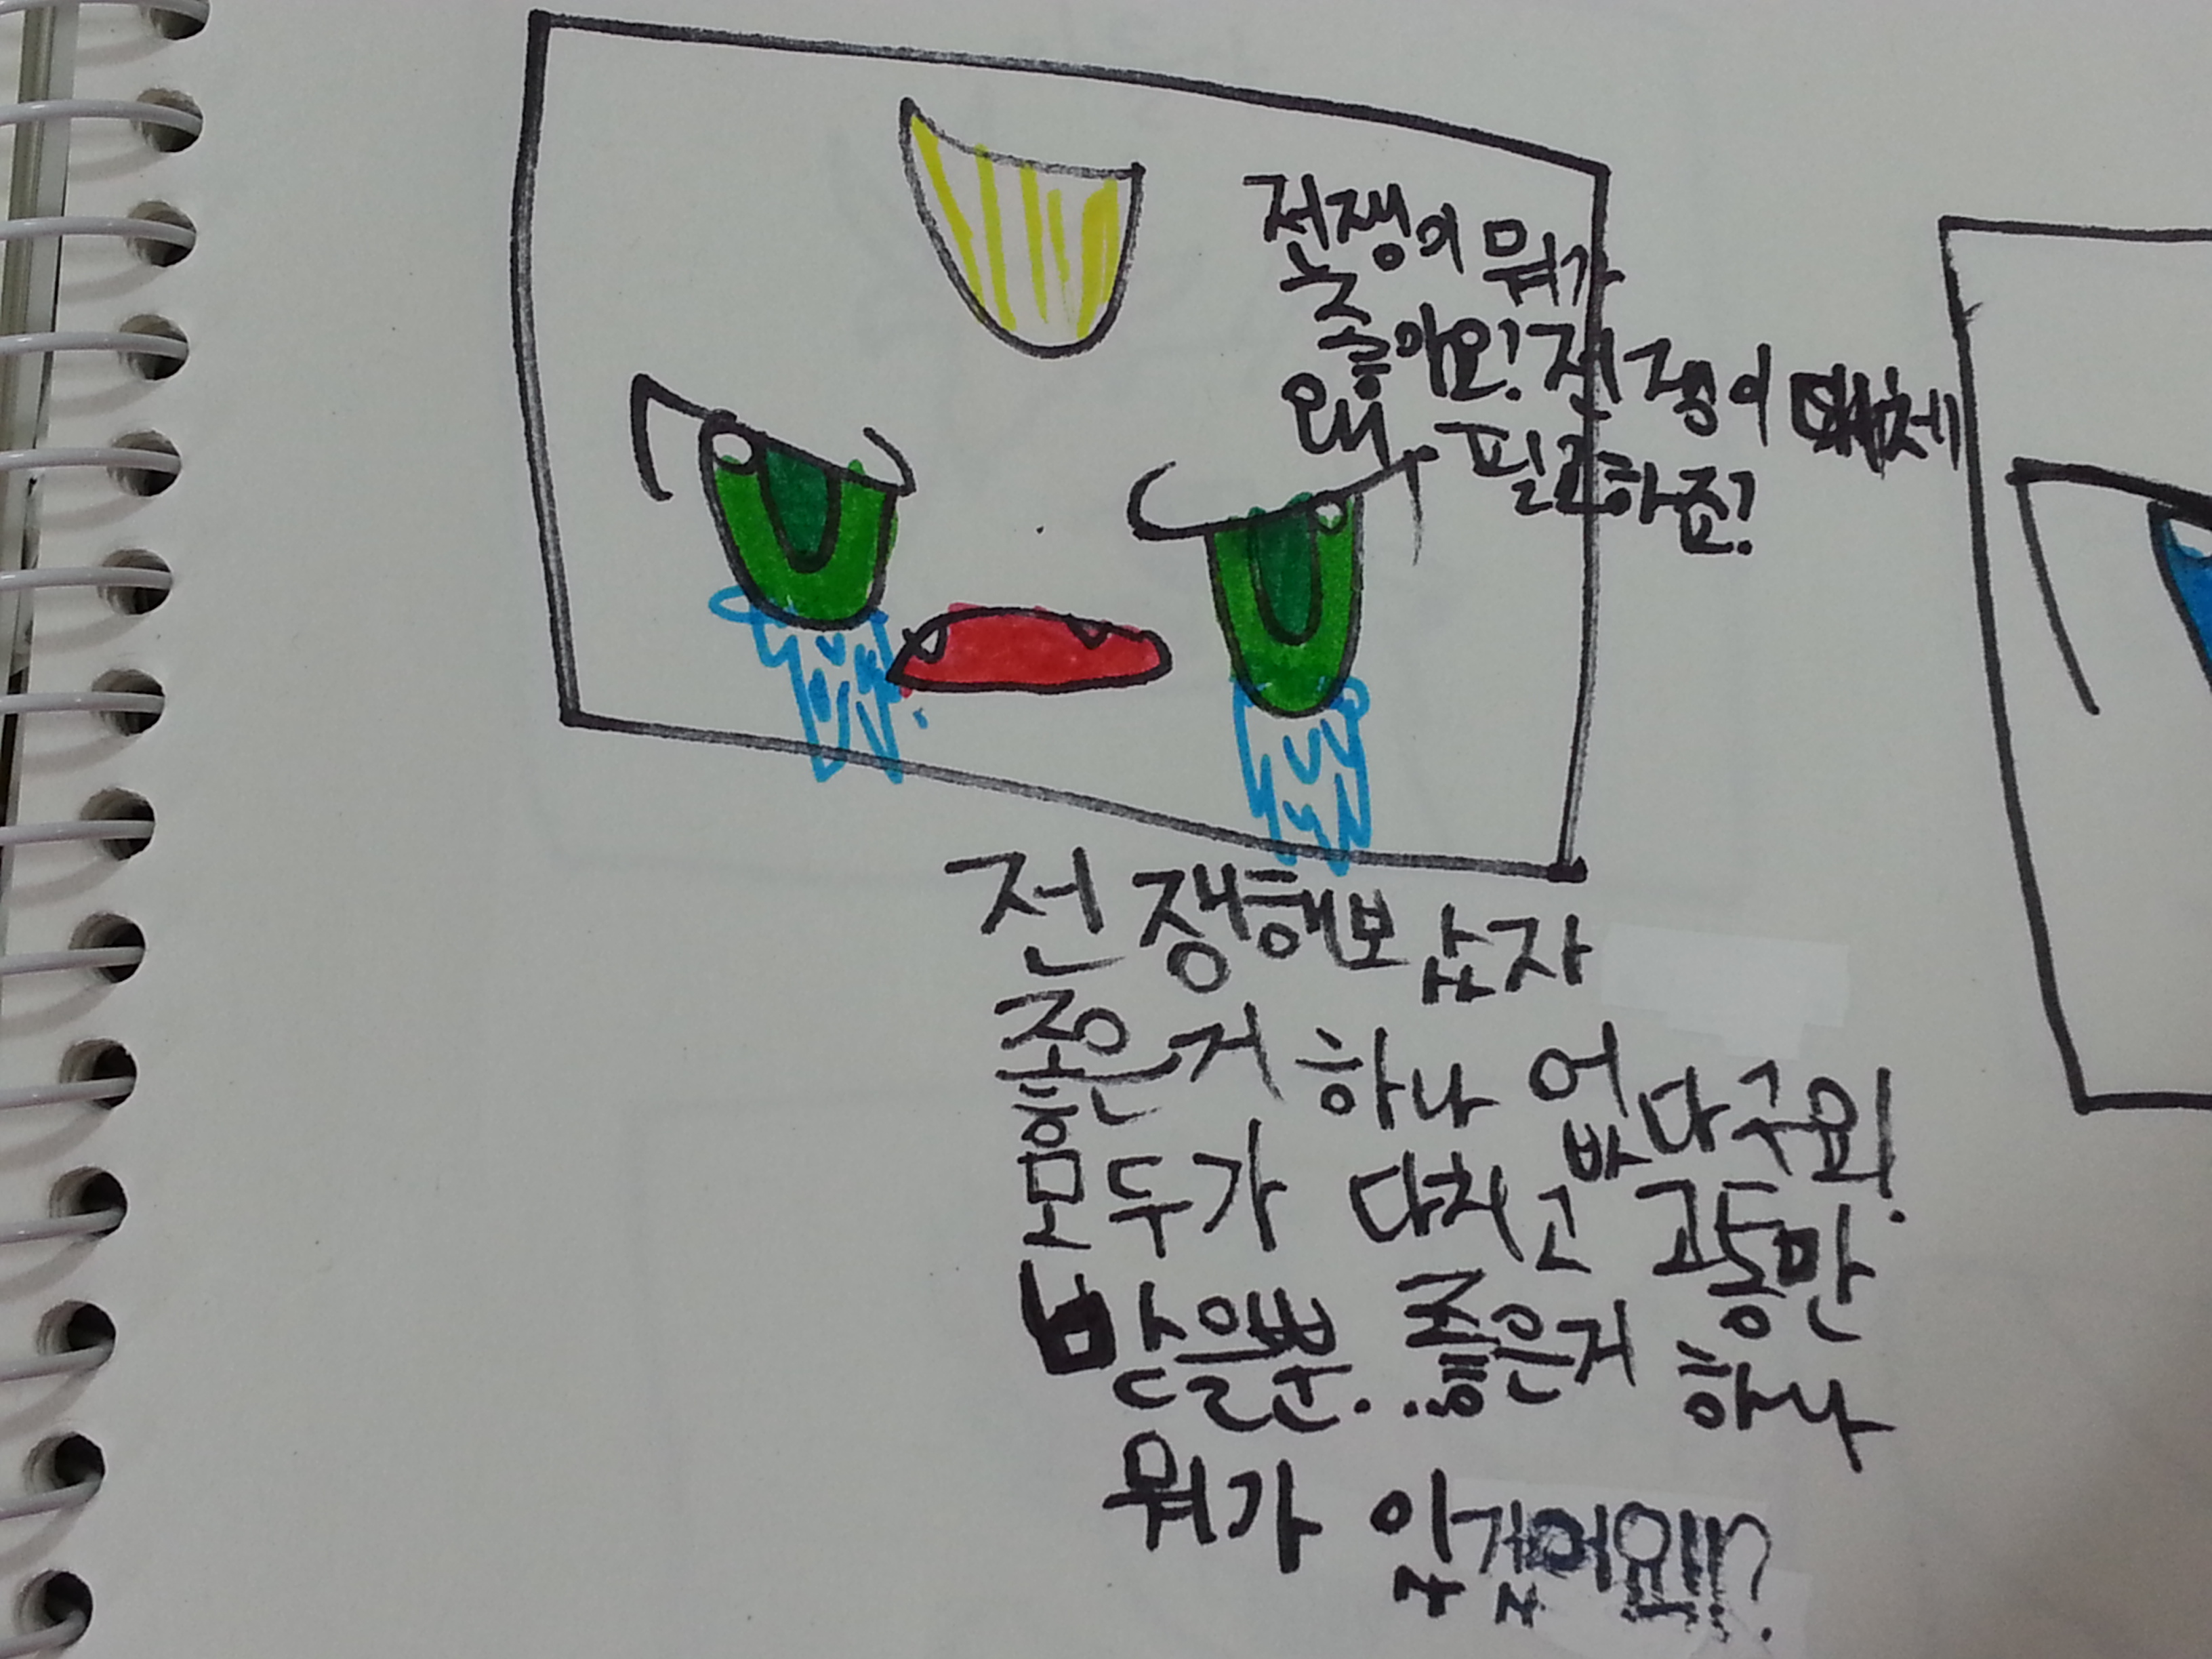 전쟁이 뭐가
좋아요! 전쟁이 대체
왜 필요하죠?
전쟁해보았자
좋은거 하나 없다구요!.
모두가 다치고 고통만
받을뿐...좋은거 하나
뭐가 있겠어요!!!?